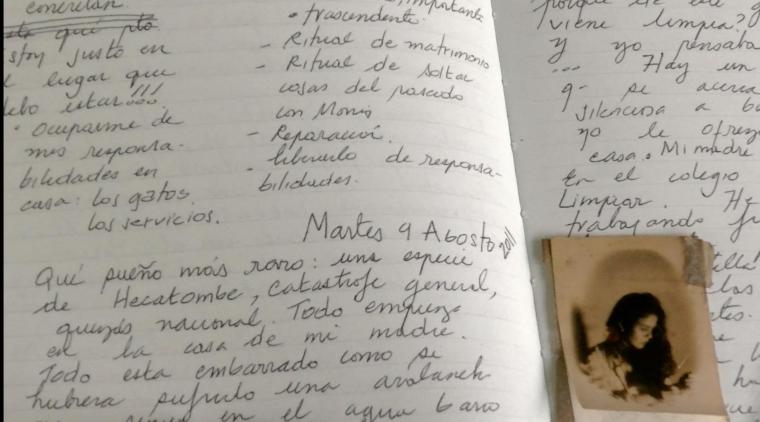 concretan.
estoy justo en
el lugar que
debo estar!!!
• Ocuparme de
mis responsa-
bilidades en
casa: los gatos.
los servicios.
importante
• trascendente.
- Ritual de matrimonio
- Ritual de soltar
cosas del pasado
con Monis
- Reparación.
- liberarlo de responsa-
bilidades.
Martes 9 Agosto 2011
Qué sueño más raro: una especie
de Hecatombe, catastrofe general,
quizás nacional. Todo empieza
en la casa de mi madre.
Todo esta embarrado como si
hubiera sufrido una avalanch
en el agua barro
viene limpia?
y yo pensaba
... Hay un
q- se acerca
silenciosa a
yo le
casa. Mi madre
En el colegio
Limpiar.
trabajando